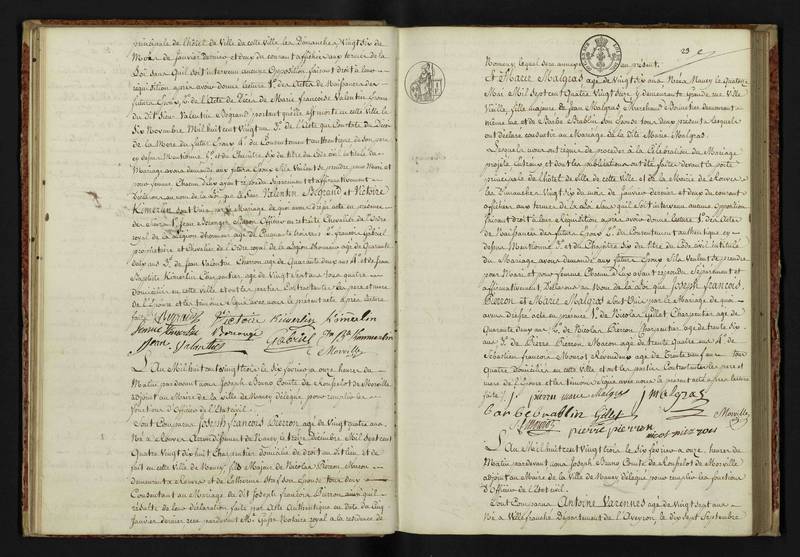 principale de l'hôtel de Ville de cette Ville les Dimanches Vingt six du
Mois de Janvier dernier et deux du courant affichées aux termes de la
Loi sans qu'il soit intervenu aucune Opposition faisant droit à leur
réquisition après avoir donné lecture 1.° des Actes de Naissances des
futurs Epoux 2.° de l'Acte de Décès de Marie Françoise Valentin Epouse
du dit Sieur Valentin Begrand portant qu'elle est morte en cette Ville le
Six Novembre Mil huit cent Vingt un 3.° de l'Acte qui Constate du Décès
de la Mère du futur Epoux 4.° du Consentement authentique de son père
ci dessus Mentionné 5.° et du Chapitre Six du titre du Code civil intitulé du
Mariage avons demandé aux futurs Epoux s'ils Veulent se prendre pour Mari et
pour femme Chacun d'eux ayant répondu séparément et affirmativement
déclarons au nom de la Loi que le Sieur Valentin Begrand et Victoire
Kimerlin sont Unis par le Mariage de quoi avons dressé acte en présence
de Sieurs 1.° Jean Officier en retraite Chevalier de l'Ordre
royal de la Légion d'honneur âgé de Cinquante trois ans 2.° françois Gabriel
propriétaire et Chevalier de l'Ordre royal de la Légion d'honneur âgé de Quarante
six ans 3.° de Jean Valentin âgé de Quarante deux ans 4.° de Jean
Baptiste Kimerlin Charpentier âgé de Vingt sept ans tous quatre
domiciliés en cette Ville et ont les parties Contractantes les père et mère
de l'Epouse et les témoins Signé avec nous le présent acte après lecture
faite. Begrand Victoire Kimerlin Kimerlin
Gabriel
Valentin Morville
L'An Mil huit cent vingt trois le six février à onze heures du
Matin pardevant nous Joseph Bruno Comte de Rouselot de Morville
adjoint au Maire de la Ville de Nancy délégué pour remplir les
fonctions d'Officier de l'Etat civil.
Sont Comparus Joseph françois Pierron âgé de Vingt quatre ans
Né à arrondissement de Nancy le treize Décembre Mil Sept cent
Quatre Vingt dix huit Charpentier domicilié de droit au dit lieu et de
fait en cette Ville de Nancy fils Majeur de Nicolas Pierron Maçon
demeurant à et de Catherine son Epouse tous deux
Consentant au Mariage du dit Joseph françois Pierron ainsi qu'il
résulte de leur déclaration faite par Acte Authentique en date du cinq
Janvier dernier reçu pardevant M.e Notaire royal à la résidence de
23
Nomeny, lequel sera annexé au présent.
Et Marie Malgras âgée de Vingt six ans Née à Nancy le Quatorze
Mai Mil Sept cent Quatre Vingt seize y demeurante grande rue Ville
Vieille, fille majeure de Jean Malgras Marchand Boisselier demeurant
même rue et de Barbe Bablin son Epouse tous deux présents lesquels
ont déclaré consentir au Mariage de la dite Marie Malgras.
Lesquels nous ont requis de procéder à la Célébration du Mariage
projeté entr'eux et dont les publications ont été faites devant la porte
principale de l'hôtel de Ville de cette Ville et de la Mairie de
les Dimanches Vingt six du mois de Janvier dernier et deux du courant
affichées aux termes de la Loi sans qu'il soit intervenu aucune Opposition
faisant droit à leur Réquisition après avoir donné lecture 1.° des Actes
de Naissances des futurs Epoux 2.° du Consentement authentique ci
dessus Mentionné 3.° et du Chapitre Six du titre du Code civil intitulé
du Mariage avons demandé aux futurs Epoux s'ils Veulent se prendre
pour Mari et pour femme Chacun d'eux ayant répondu Séparément et
affirmativement, Déclarons au Nom de la Loi que Joseph françois
Pierron et Marie Malgras sont Unis par le Mariage de quoi
avons dressé acte en présence 1.° de Nicolas Gillet Charpentier âgé de
Quarante deux ans 2.° de Nicolas Pierron Charpentier âgé de trente six
ans 3.° de Pierre Pierron Maçon âgé de trente quatre ans 4.° de
Sébastien François Mourot Revendeur âgé de trente neuf ans tous
Quatre domiciliés en cette Ville et ont les parties Contractantes les père et
mère de l'Epouse et les témoins Signé avec nous le présent acte après lecture
faite. J. pierron marie Malgras J malgras
Barbe bablin Gillet Morville
Mourot pierre pierron
L'An Mil huit cent Vingt trois le six février à onze heures du
Matin pardevant nous Joseph Bruno Comte de Rouselot de Morville
adjoint au Maire de la Ville de Nancy délégué pour remplir les fonctions
d'Officier de l'Etat civil.
Sont Comparus Antoine Varennes âgé de Vingt sept ans
Né à Villefranche Département de l'Aveyron, le dix Sept Septembre